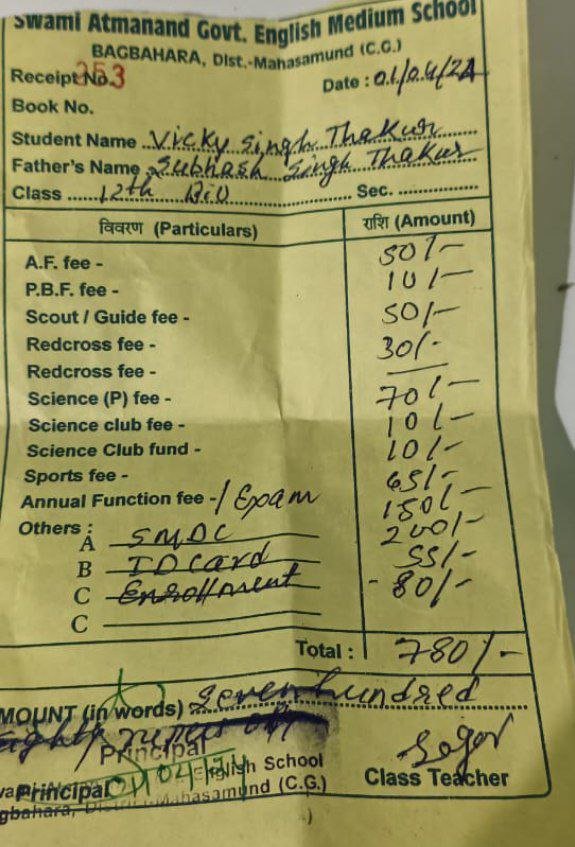 Swami Atmanand Govt. English Medium School
BAGBAHARA, Dist.-Mahasamund (C.G.)
Receipt No. 253
Date : 01/04/24
Book No.
Student Name Vicky Singh Thakur
Father's Name Subhash Singh Thakur
Class 12th Bio Sec.
विवरण (Particulars) राशि (Amount)
A.F. fee - 50/-
P.B.F. fee - 10/-
Scout / Guide fee - 50/-
Redcross fee - 30/-
Redcross fee - —
Science (P) fee - 70/-
Science club fee - 10/-
Science Club fund - 10/-
Sports fee - 65/-
Annual Function fee - / Exam 150/-
Others : 200/-
A SMDC 55/-
B ID Card - 80/-
C Enrollment
C
Total : 780/-
MOUNT (in words) Seven hundred
eighty rupees only
Principal
01/04/24
English School
Principal
Class Teacher
gbahara, Mahasamund (C.G.)